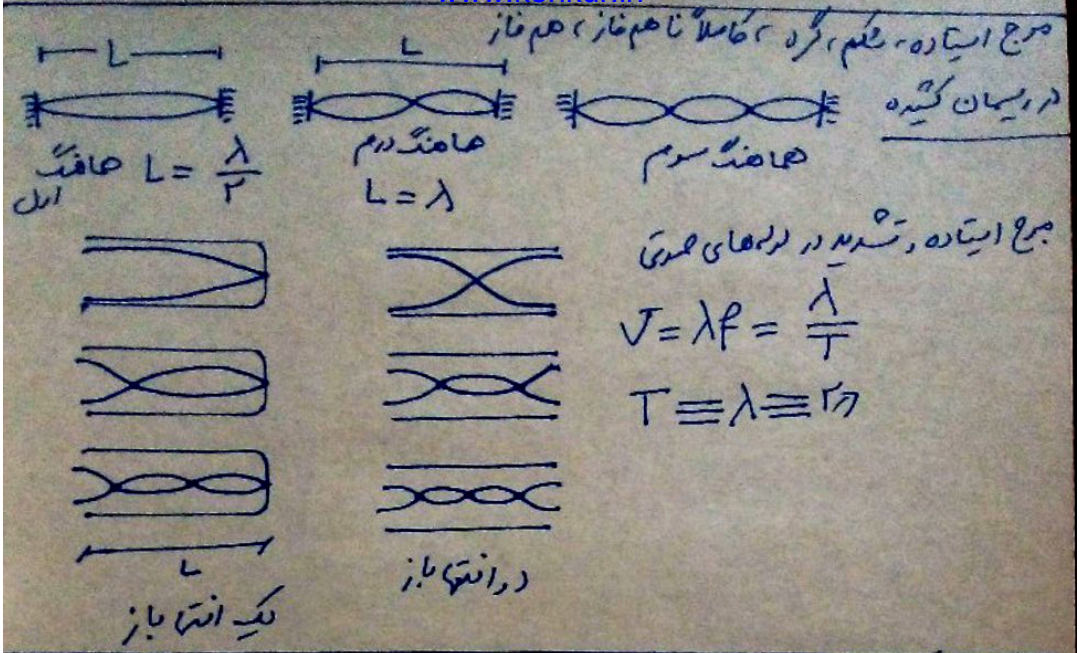 موج ایستاده، شکم، گره، کاملاً ناهم فاز، هم فاز
در ریسمان کشیده
L
L
هماهنگ اول L = λ/۲
هماهنگ دوم
L = λ
هماهنگ سوم
موج ایستاده و تشدید در لوله‌های صوتی
V = λf = λ/T
T ≡ λ ≡ ۲π
L
یک انتها باز
دو انتها باز